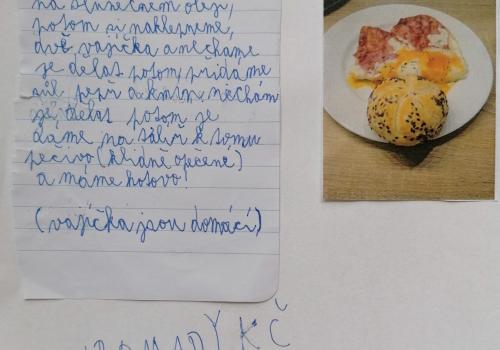 na slunečnem oleji,
potom si naklepneme,
dvě vajíčka a necháme
je dělat potom přidáme
sůl pepř a kmín, necháme
je dělat potom je
dáme na talíř k tomu
pečivo (klidně opečené)
a máme hotovo!
(vajíčka jsou domácí)